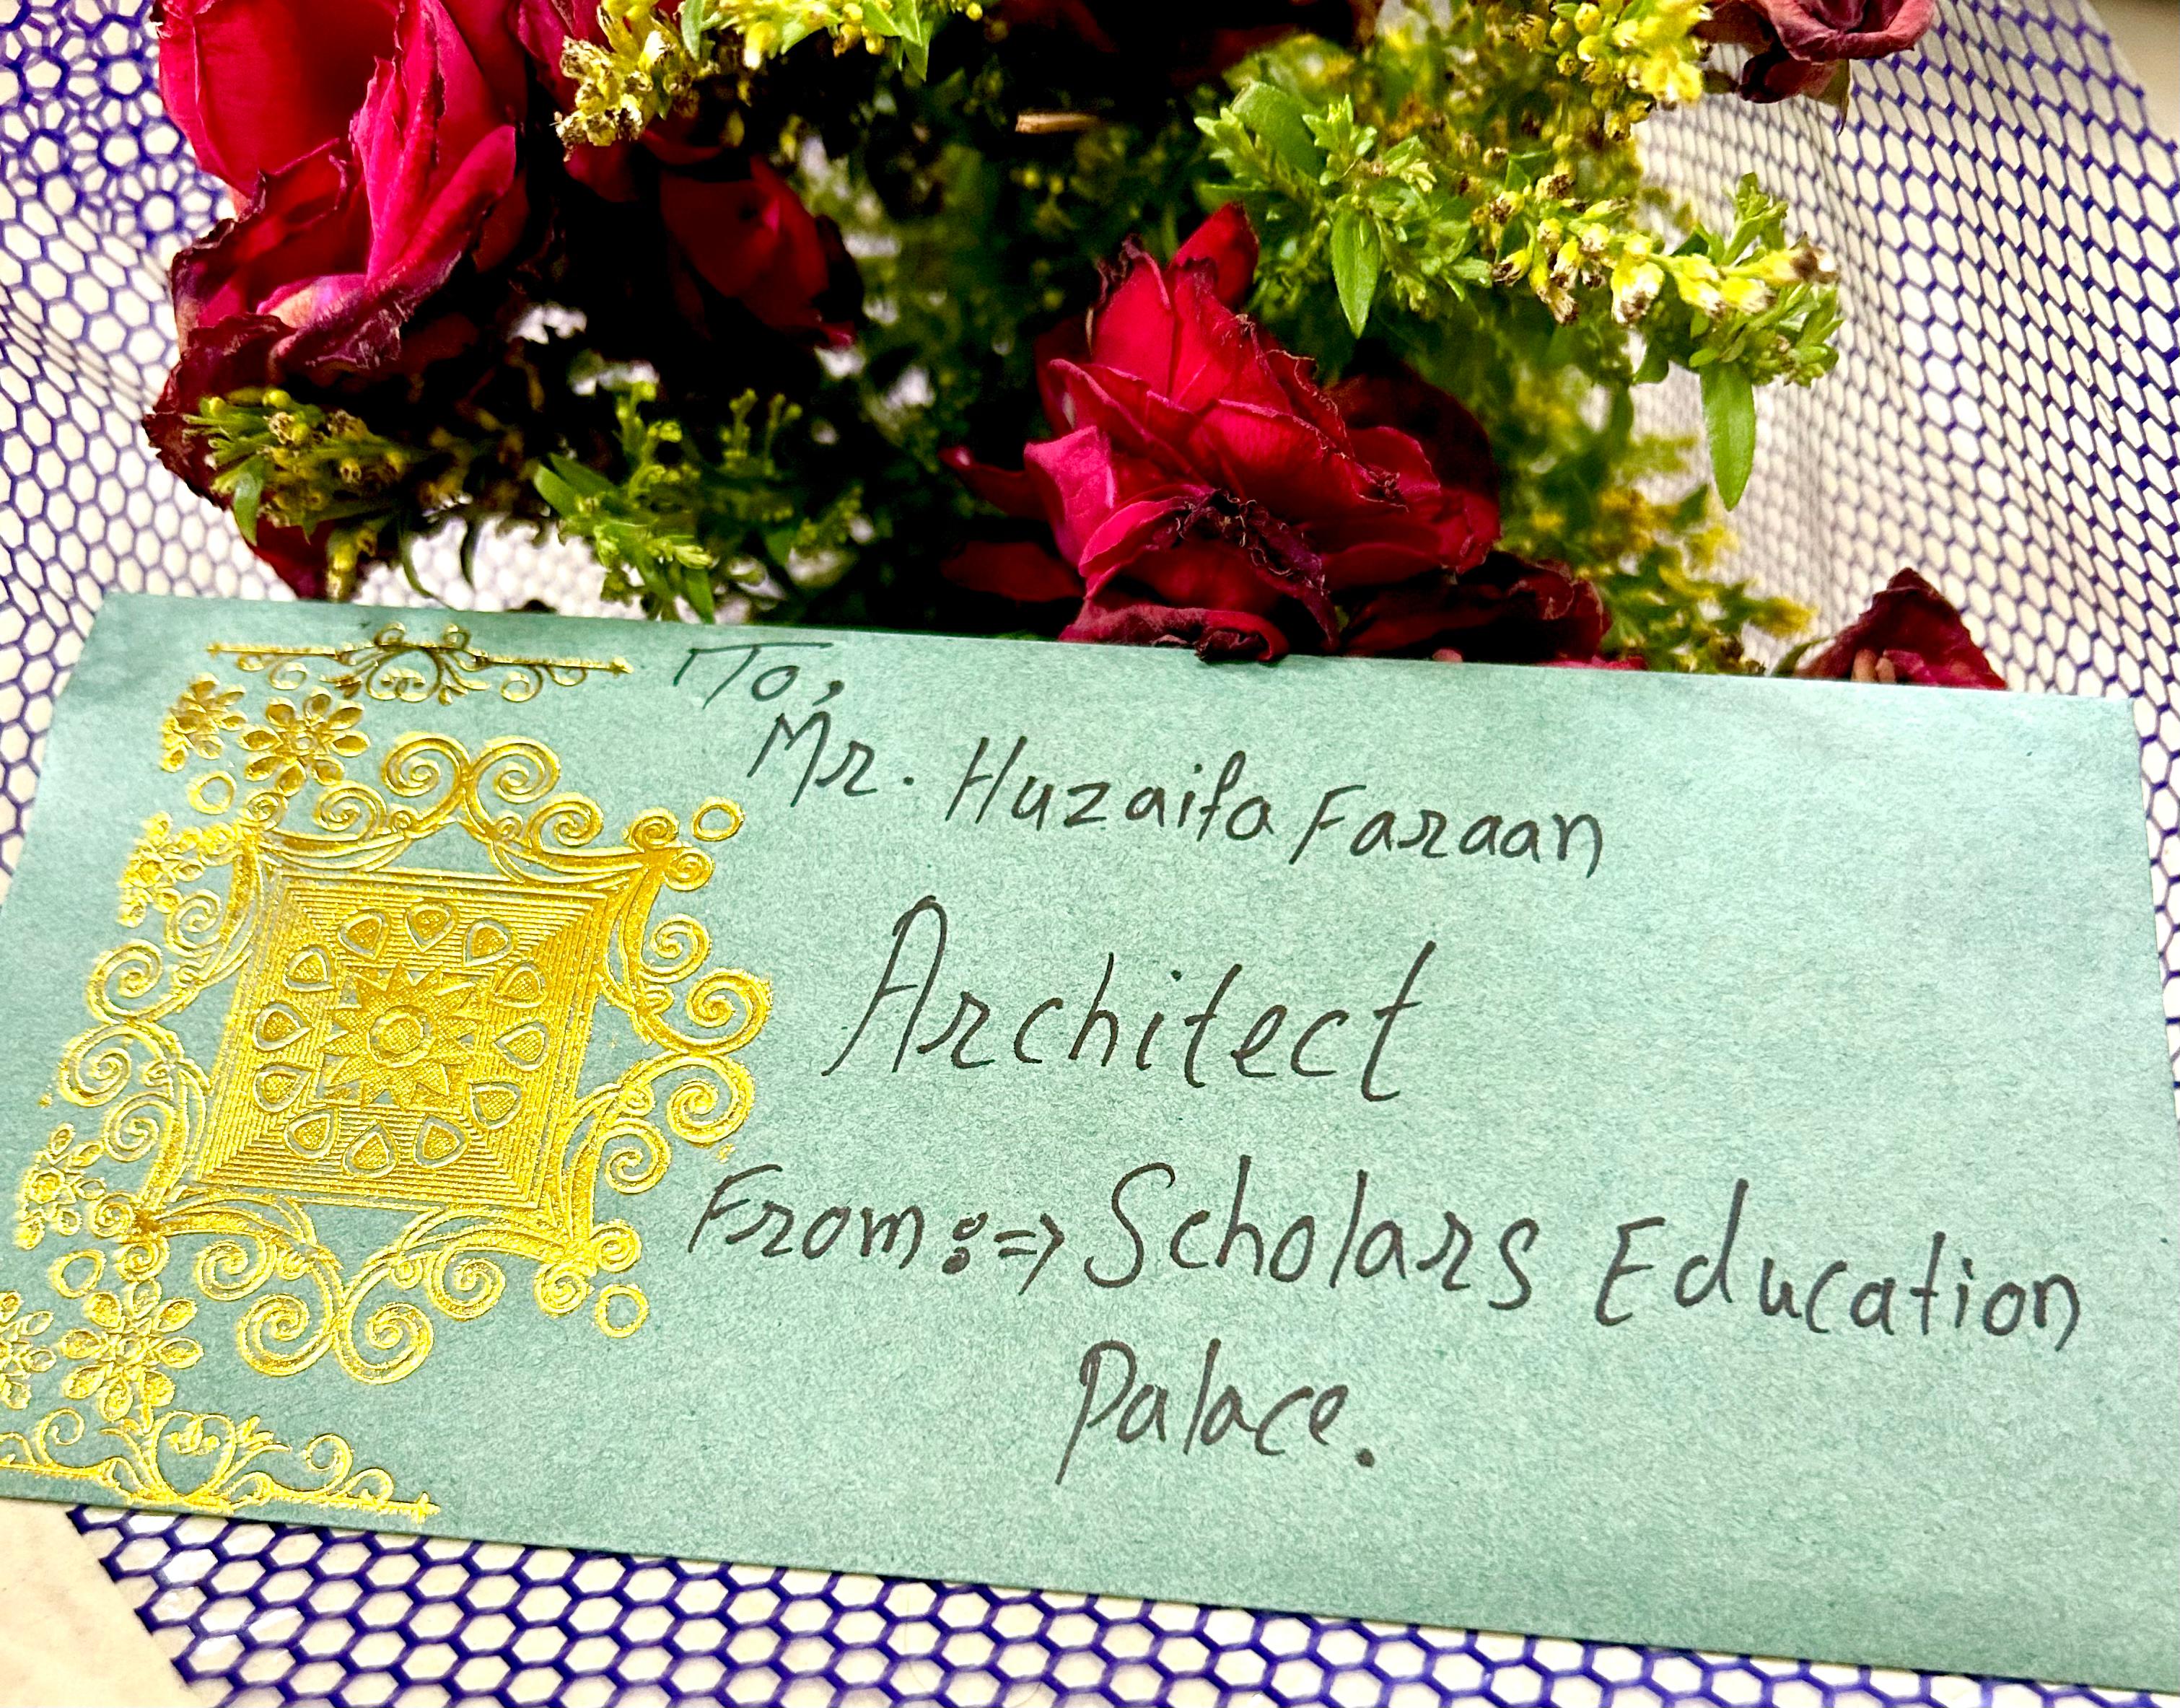 To,
Mr. Huzaifa Faraan
Architect
From :⇒ Scholars Education
Palace.